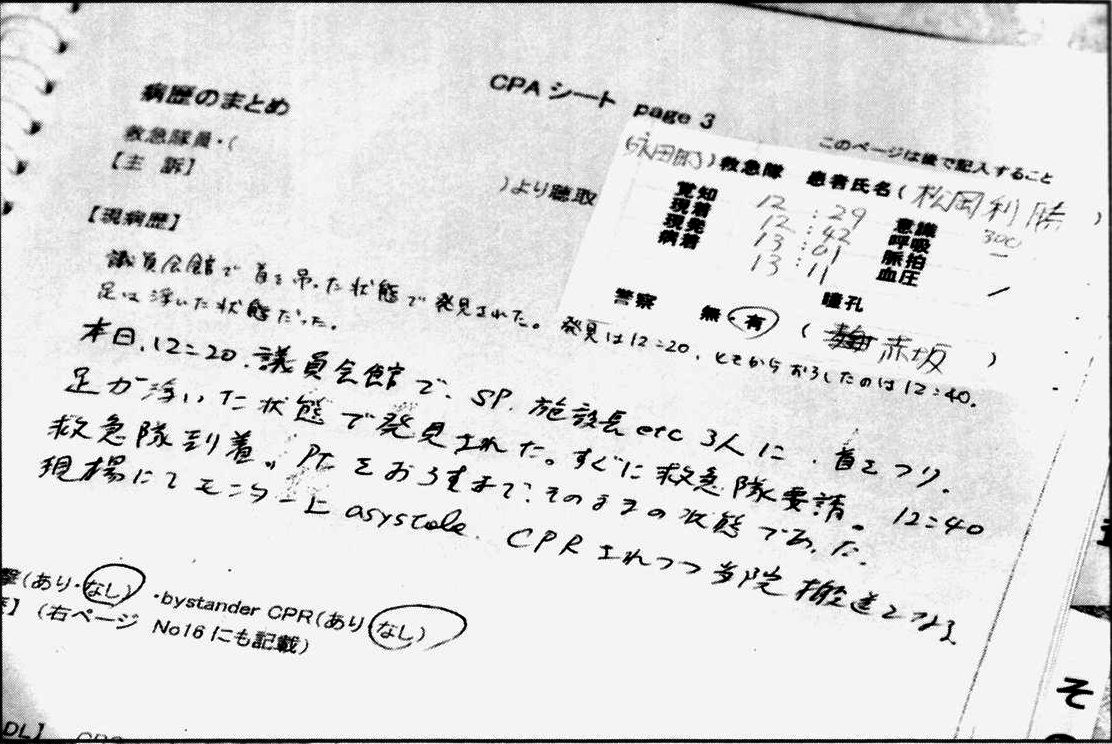 CPA シート page 3
このページは後で記入すること
病歴のまとめ
救急隊員・(
(永田町)救急隊 患者氏名(松岡利勝)
)より聴取
【主 訴】
覚知 12:29 意識 300
現着 12:42 呼吸 −
現発 13:01 脈拍
病着 13:11 血圧
瞳孔
警察 無・有 (赤坂)
【現病歴】
議員会館で首を吊った状態で発見された。発見は12:20、そこからおろしたのは12:40。
足は浮いた状態だった。
本日、12:20、議員会館で、SP、施設長etc 3人に、首をつり、
足が浮いた状態で発見された。すぐに救急隊要請。12:40
救急隊到着。Ptをおろすまで、そのままの状態であった。
現場にてモニター上 asystole、CPRされつつ当院搬送となる
撃(あり・なし) ・bystander CPR(あり・なし)
】(右ページ No16にも記載)
DL】
そ